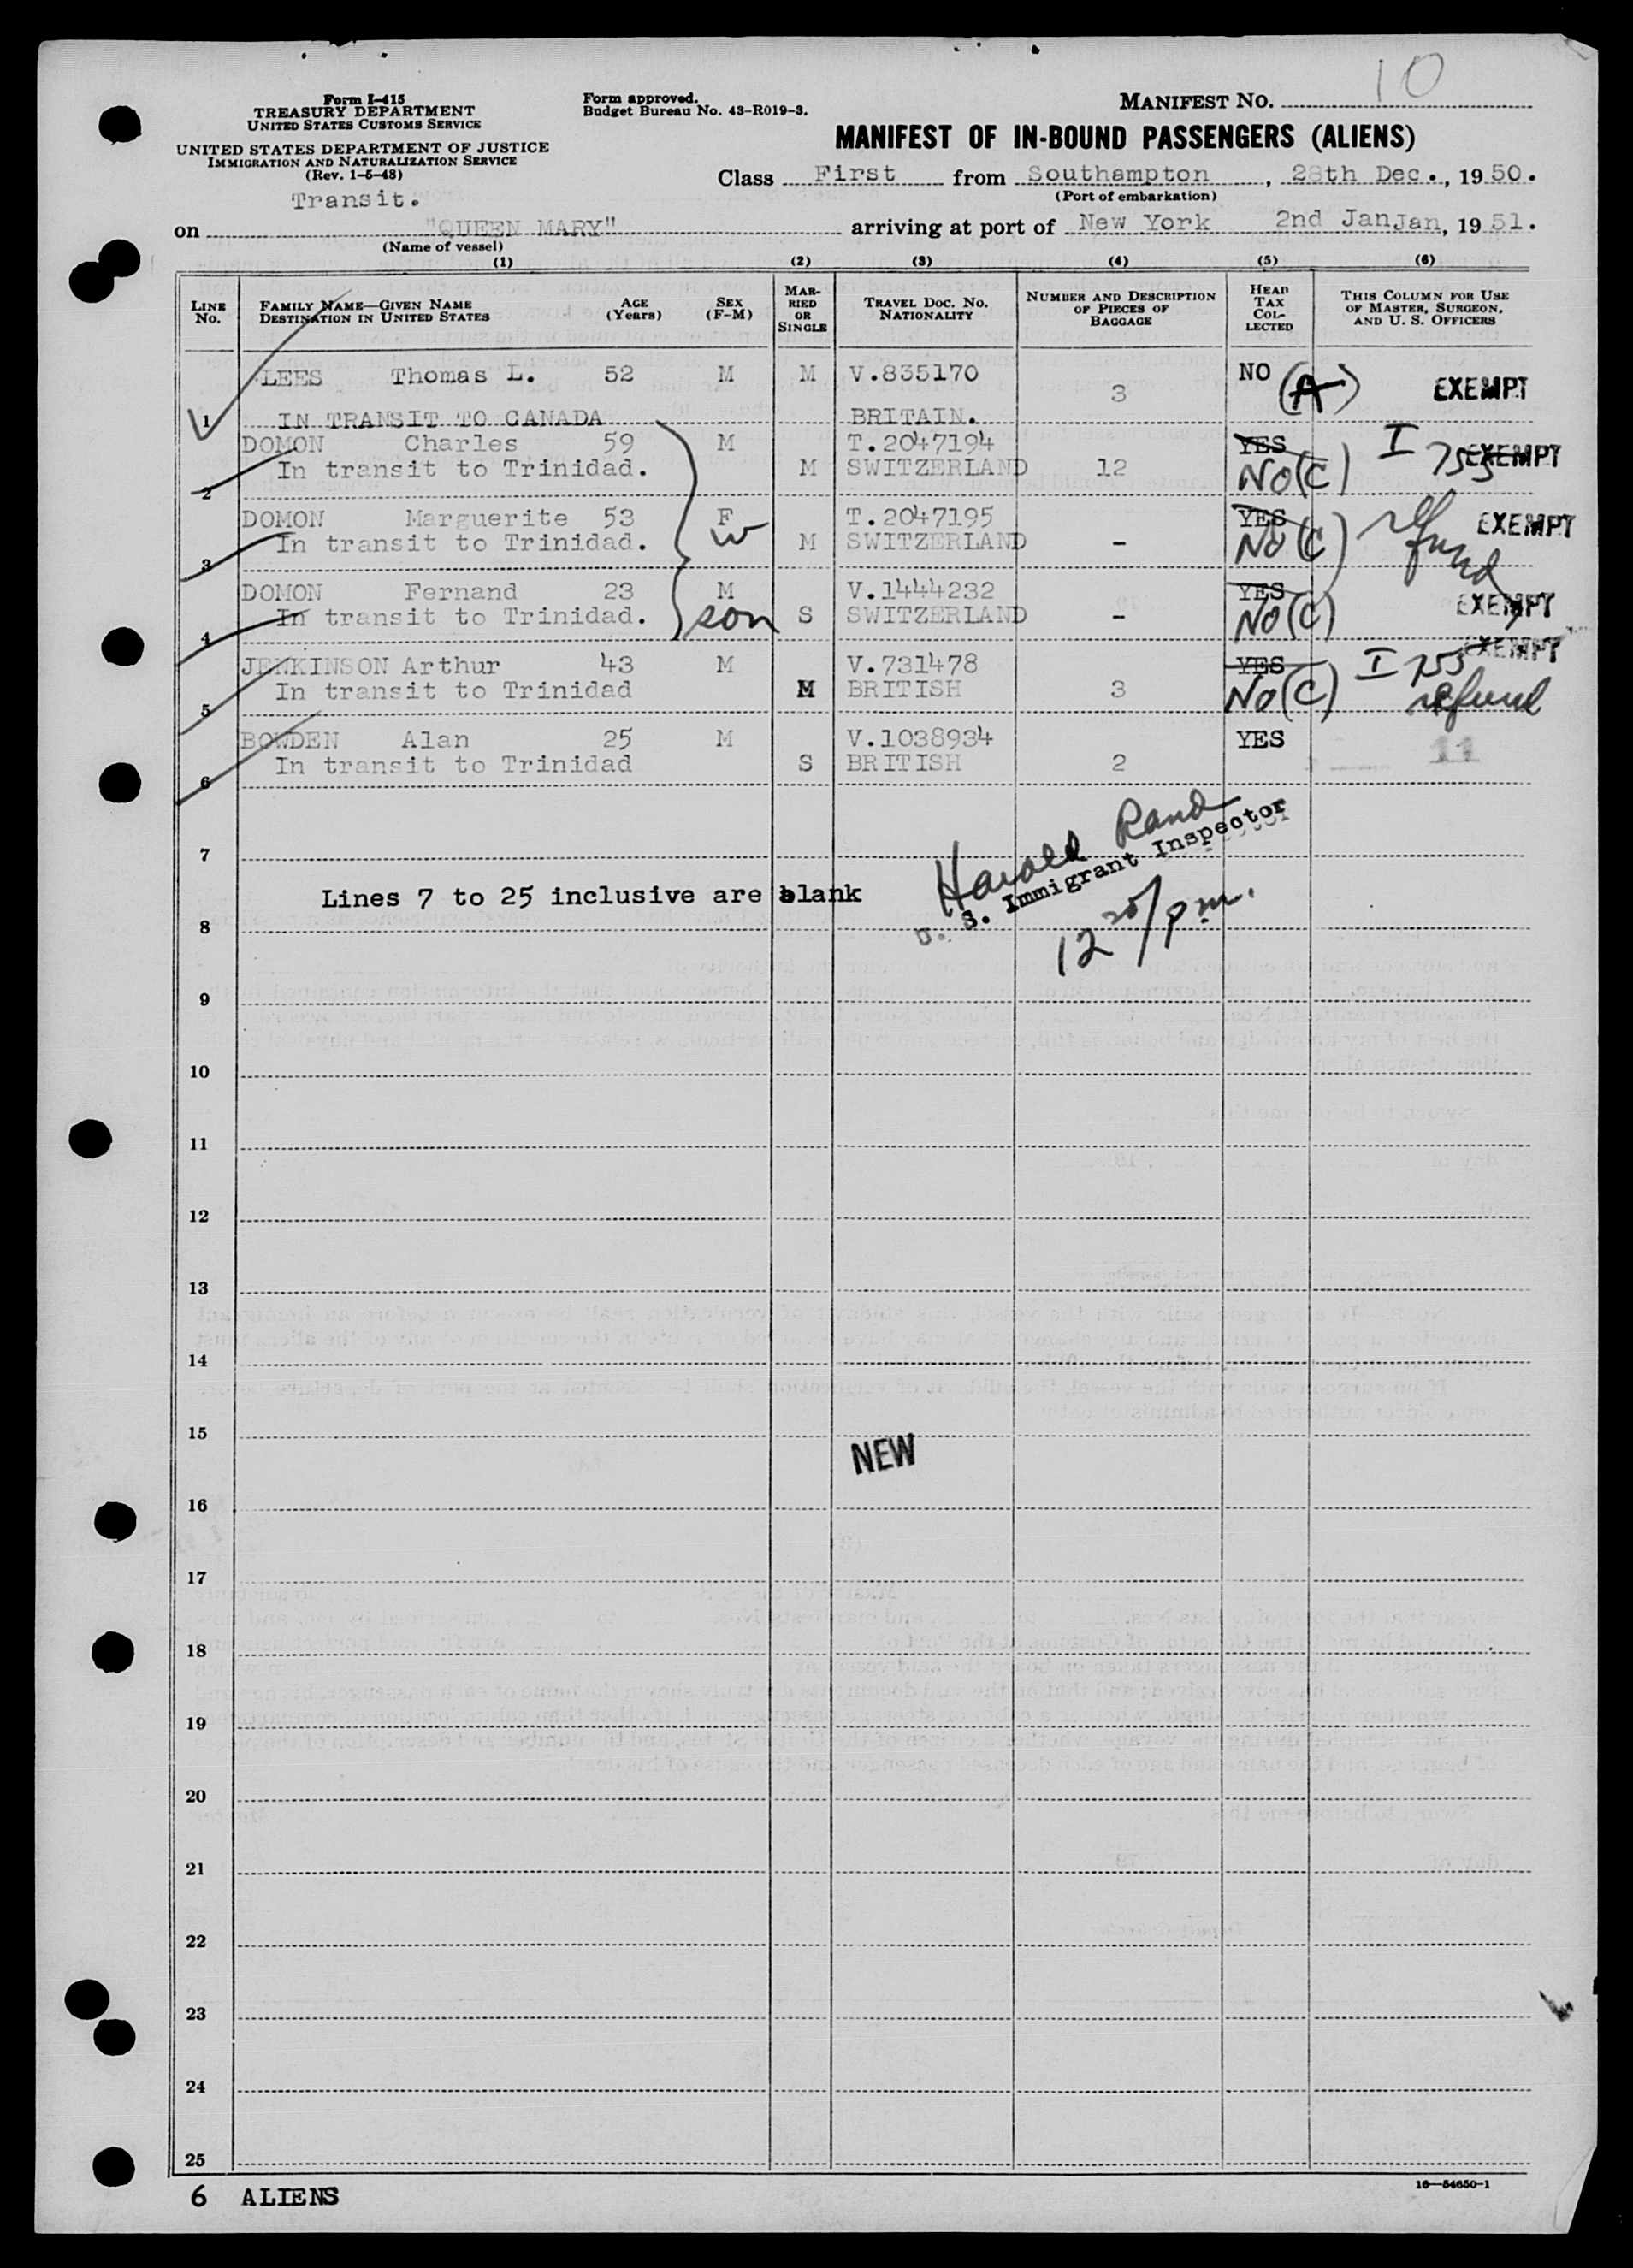 10
Form I-415
TREASURY DEPARTMENT
UNITED STATES CUSTOMS SERVICE
UNITED STATES DEPARTMENT OF JUSTICE
IMMIGRATION AND NATURALIZATION SERVICE
(Rev. 1-5-48)
Transit.
Form approved.
Budget Bureau No. 43-R019-3.
MANIFEST NO.
MANIFEST OF IN-BOUND PASSENGERS (ALIENS)
Class First from Southampton, 28th Dec., 1950.
(Port of embarkation)
on "QUEEN MARY" arriving at port of New York 2nd JanJan, 1951.
(Name of vessel)
(1) (2) (3) (4) (5) (6)
LINE No. FAMILY NAME—GIVEN NAME DESTINATION IN UNITED STATES AGE (Years) SEX (F-M) MARRIED OR SINGLE TRAVEL DOC. NO. NATIONALITY NUMBER AND DESCRIPTION OF PIECES OF BAGGAGE HEAD TAX COLLECTED THIS COLUMN FOR USE OF MASTER, SURGEON, AND U. S. OFFICERS
LEES Thomas L. 52 M M V.835170 3 NO (A) EXEMPT
1 IN TRANSIT TO CANADA BRITAIN.
DOMON Charles 59 M T.2047194 YES I 755 EXEMPT
2 In transit to Trinidad. M SWITZERLAND 12 No (C)
DOMON Marguerite 53 F T.2047195 YES refund EXEMPT
3 In transit to Trinidad. W M SWITZERLAND - No (C)
DOMON Fernand 23 M V.1444232 YES EXEMPT
4 In transit to Trinidad. son S SWITZERLAND - No (C)
JENKINSON Arthur 43 M V.731478 YES I 755 EXEMPT
5 In transit to Trinidad M BRITISH 3 No (C) refund
BOWDEN Alan 25 M V.1038934 YES 11
6 In transit to Trinidad S BRITISH 2
Harold Rand
U. S. Immigrant Inspector
12 20/pm.
7
Lines 7 to 25 inclusive are blank
8
9
10
11
12
13
14
15
NEW
16
17
18
19
20
21
22
23
24
25
6 ALIENS
16—54650-1